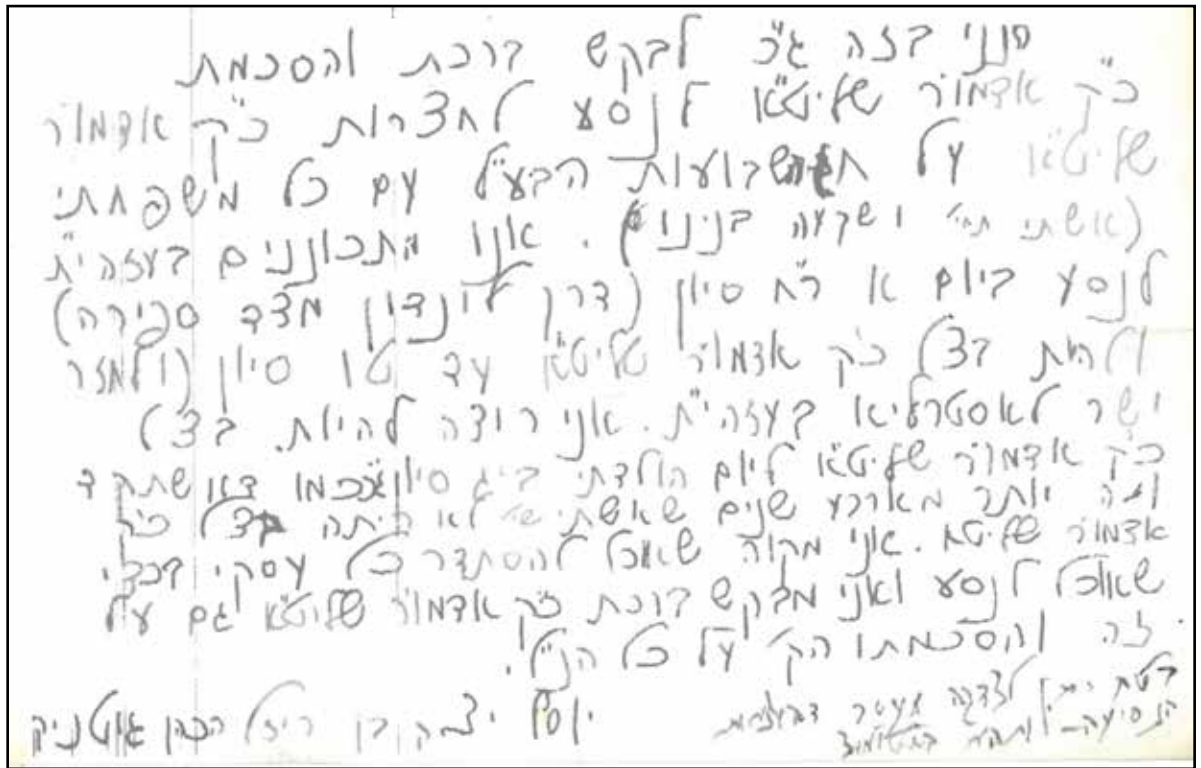 הנני בזה ג"כ לבקש ברכת והסכמת
כ"ק אדמו"ר שליט"א לנסע לחצרות כ"ק אדמו"ר
שליט"א על השבועות הבע"ל עם כל משפחתי
(אשתי תי' ושבעה בנינו). אנו מתכוננים בעזהי"ת
לנסע ביום א ר"ח סיון (דרך לונדון מצד ספירה)
ולהיות בצל כ"ק אדמו"ר שליט"א עד טו סיון (ולחזר
ישר לאוסטרליא בעזהי"ת. אני רוצה להיות בצל
כ"ק אדמו"ר שליט"א ליום הולדתי ביג סיון כמו דאשתקד
וזה יותר מארבע שנים שאשתי שי' לא היתה בצל כ"ק
אדמו"ר שליטא. אני מקוה שאוכל להסתדר כל עסקי בכדי
שאוכל לנסע ואני מבקש ברכת כ"ק אדמו"ר שליט"א גם על
זה והסכמתו הק' על כל הנ"ל.
יוסף יצחק בן רייזל הכהן גוטניק
בלעת לצדקה
הנסיעה